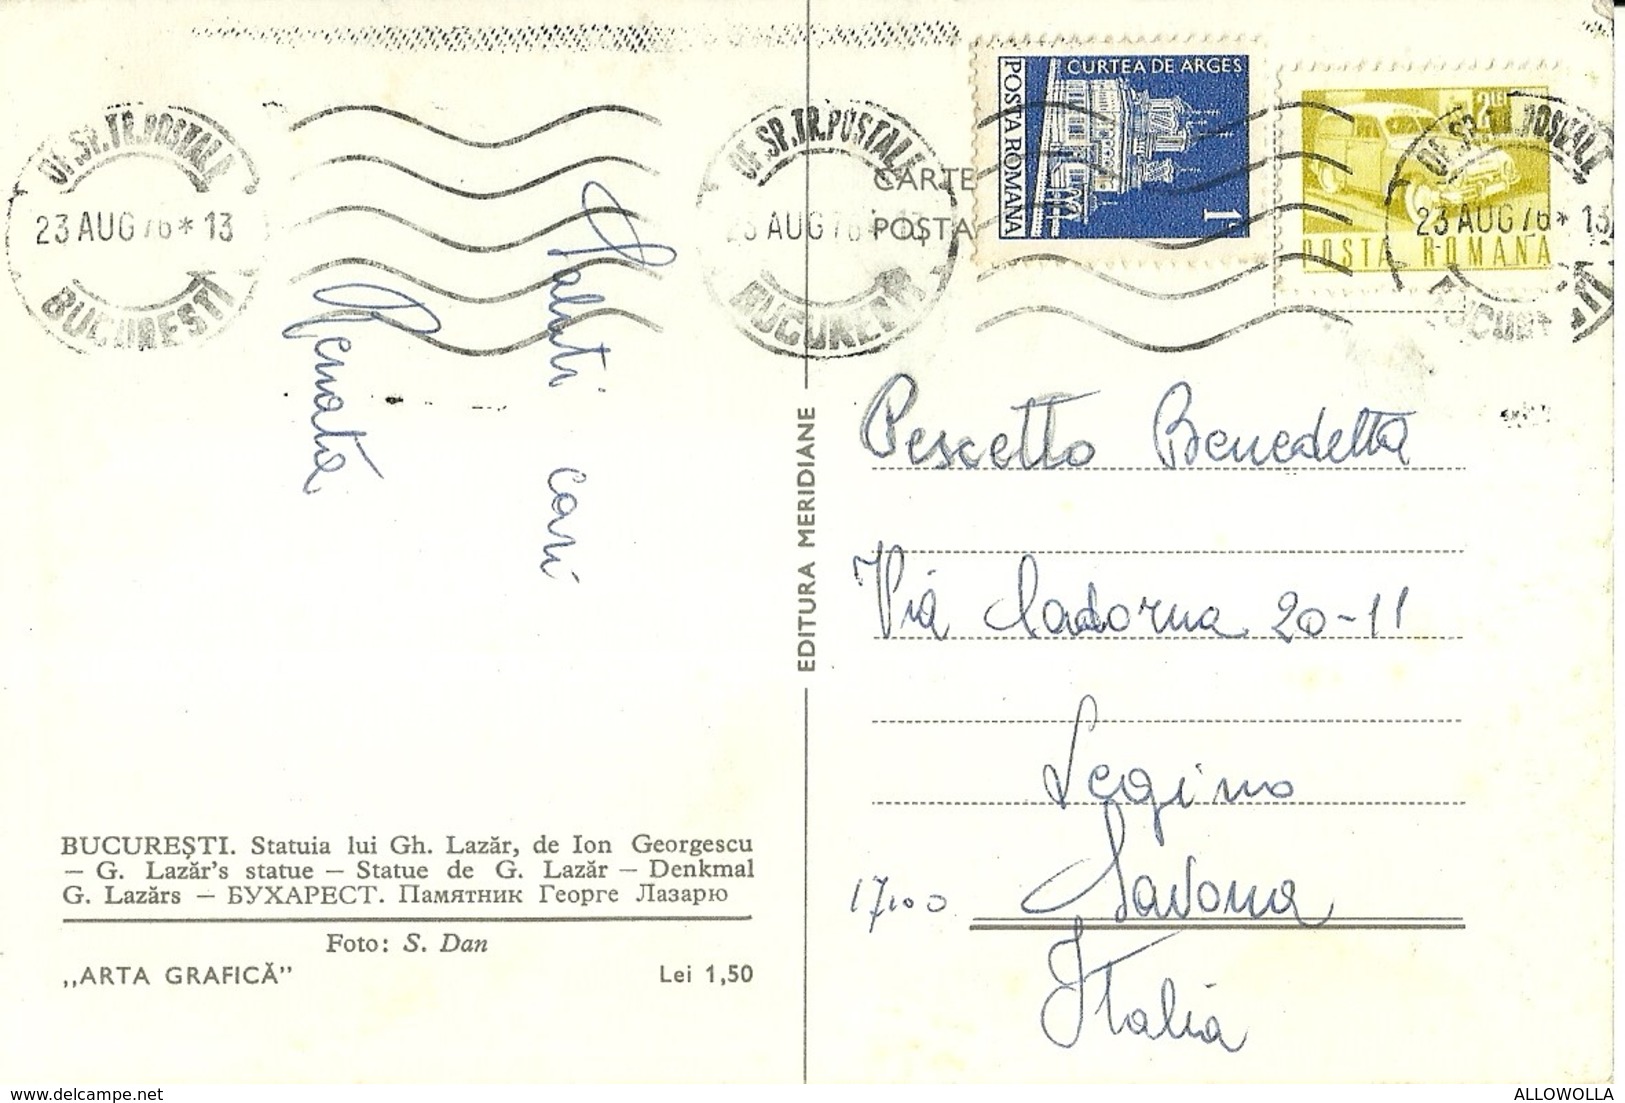 OF.SP.TR.POSTALE
23 AUG 76 * 13
BUCURESTI
OF.SP.TR.POSTALE
23 AUG 76 * 13
BUCURESTI
CARTE
POSTA
CURTEA DE ARGES
POSTA ROMANA
1
2 LEI
POSTA ROMANA
OF.SP.TR.POSTALE
23 AUG 76 * 13
Saluti cari
Renata
EDITURA MERIDIANE
Pescetto Benedetta
Via Cadorna 20-11
Legino
17100 Savona
Italia
BUCUREȘTI. Statuia lui Gh. Lazăr, de Ion Georgescu
— G. Lazăr's statue — Statue de G. Lazăr — Denkmal
G. Lazărs — БУХАРЕСТ. Памятник Георге Лазарю
Foto: S. Dan
„ARTA GRAFICĂ"
Lei 1,50
ALLOWOLLA